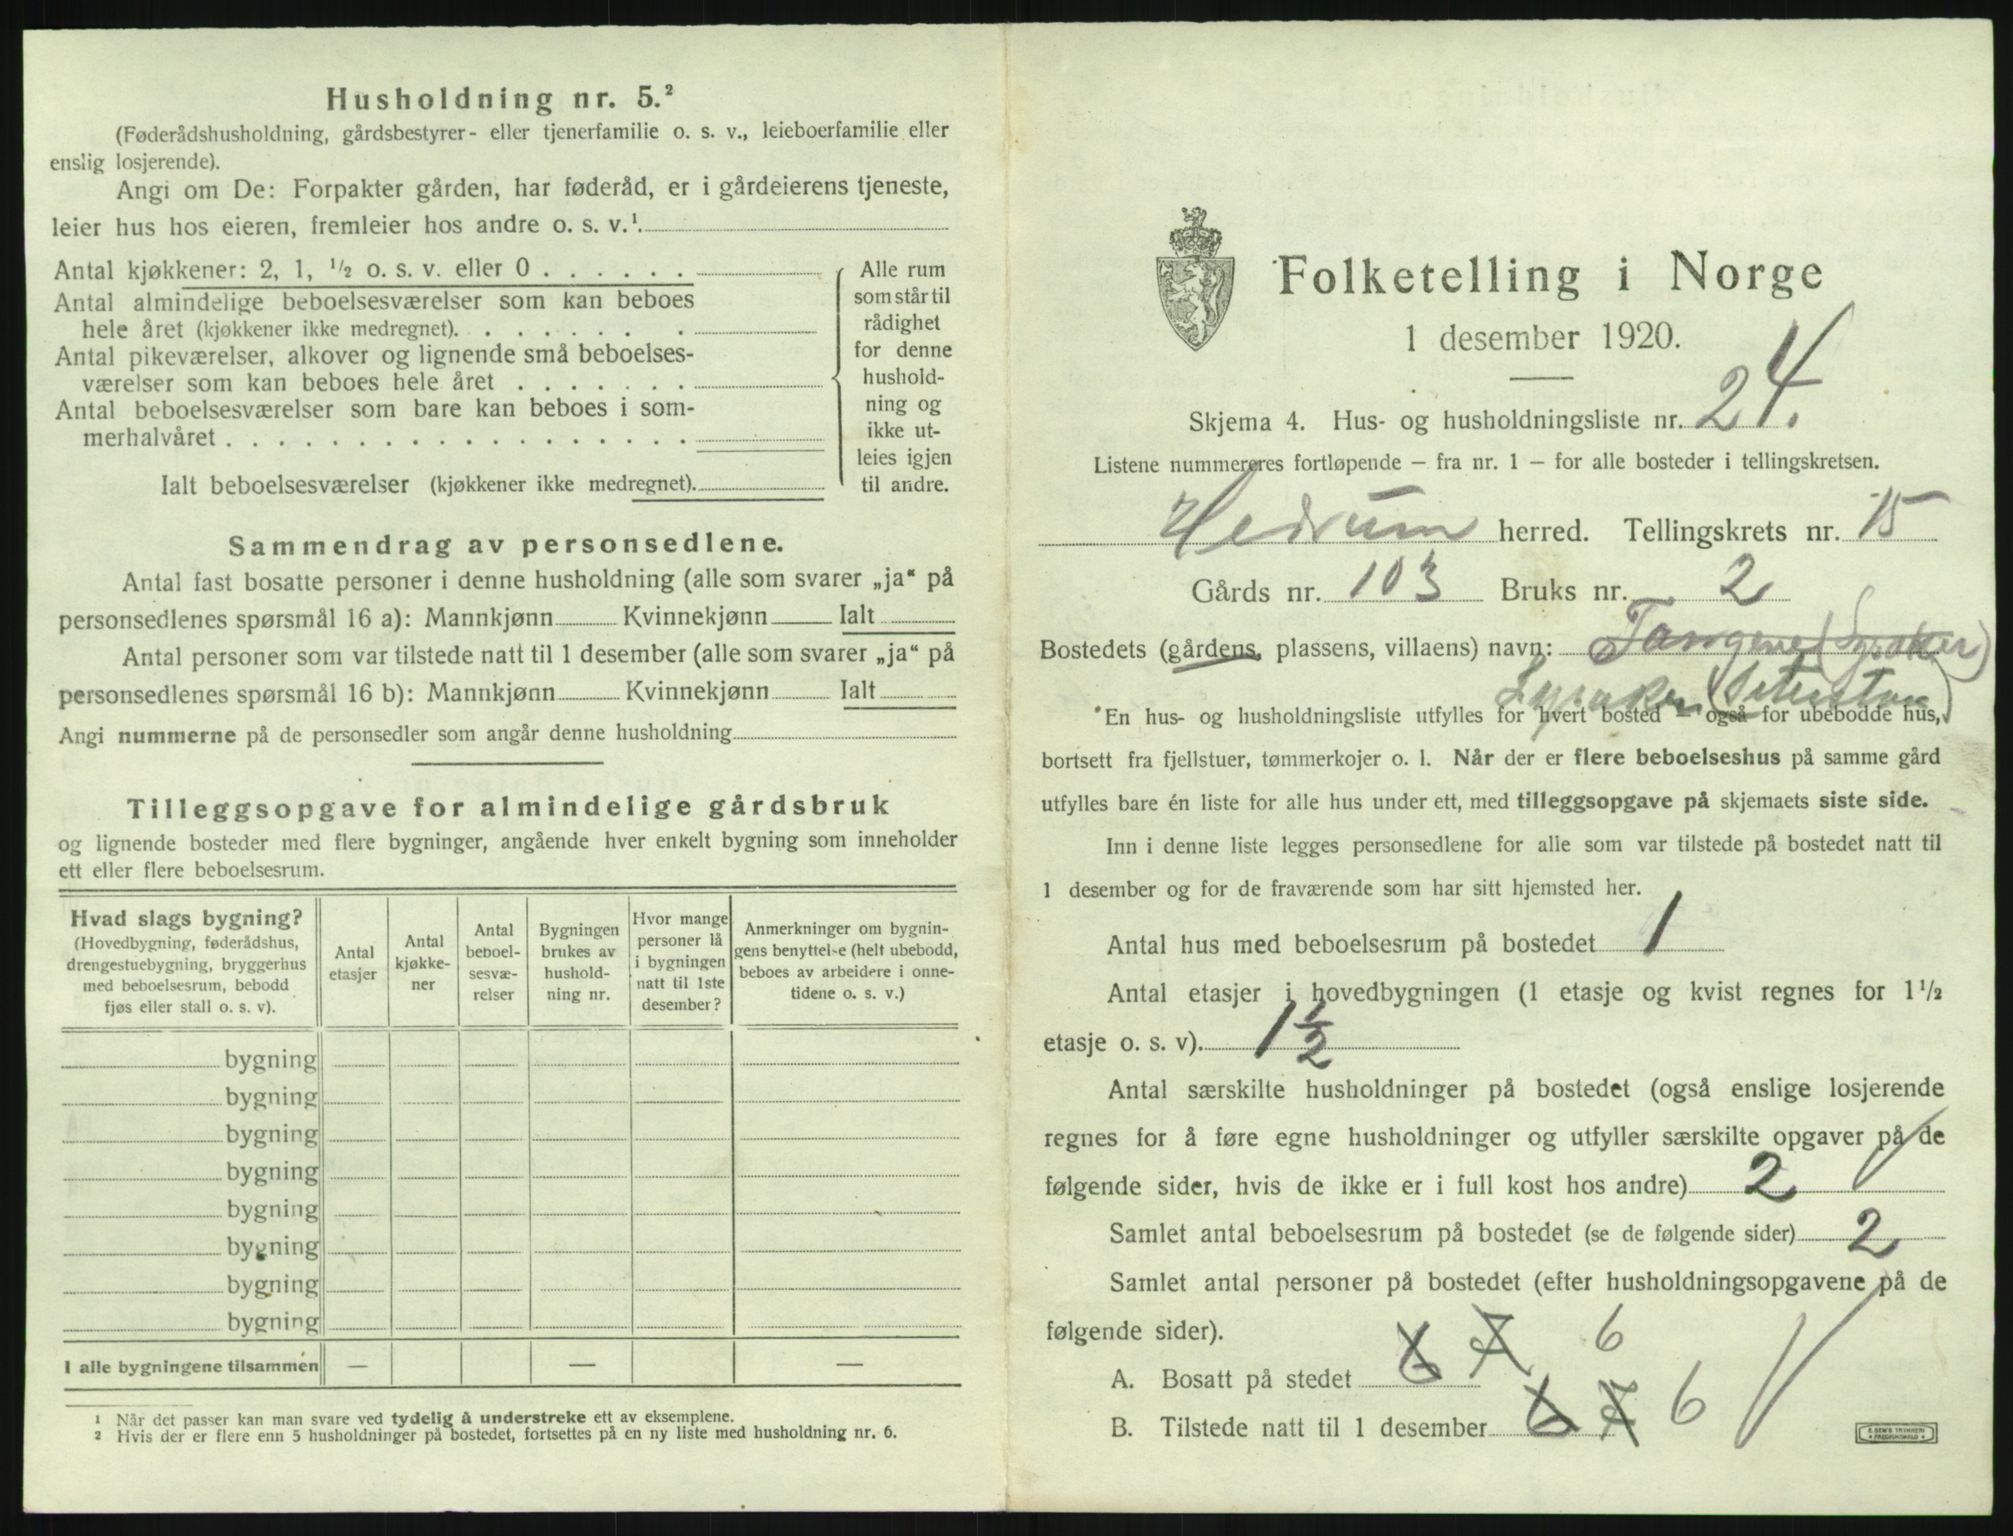 Husholdning nr. 5.²
(Føderådshusholdning, gårdsbestyrer- eller tjenerfamilie o. s. v., leieboerfamilie eller
enslig losjerende).
Angi om De: Forpakter gården, har føderåd, er i gårdeierens tjeneste,
leier hus hos eieren, fremleier hos andre o. s. v.¹
Antal kjøkkener: 2, 1, ½ o. s. v. eller 0 . . . . . .
Antal almindelige beboelsesværelser som kan beboes
hele året (kjøkkener ikke medregnet). . . . . . .
Antal pikeværelser, alkover og lignende små beboelses-
værelser som kan beboes hele året . . . . . . .
Antal beboelsesværelser som bare kan beboes i som-
merhalvåret . . . . . . . . . . . . . . . . . .
Ialt beboelsesværelser (kjøkkener ikke medregnet).
Alle rum
som står til
rådighet
for denne
hushold-
ning og
ikke ut-
leies igjen
til andre.
Sammendrag av personsedlene.
Antal fast bosatte personer i denne husholdning (alle som svarer „ja“ på
personsedlenes spørsmål 16 a): Mannkjønn Kvinnekjønn Ialt
Antal personer som var tilstede natt til 1 desember (alle som svarer „ja“ på
personsedlenes spørsmål 16 b): Mannkjønn Kvinnekjønn Ialt
Angi nummerne på de personsedler som angår denne husholdning
Tilleggsopgave for almindelige gårdsbruk
og lignende bosteder med flere bygninger, angående hver enkelt bygning som inneholder
ett eller flere beboelsesrum.
Hvad slags bygning?
(Hovedbygning, føderådshus,
drengestuebygning, bryggerhus
med beboelsesrum, bebodd
fjøs eller stall o. s. v).
Antal
etasjer
Antal
kjøkke-
ner
Antal
beboel-
sesvæ-
relser
Bygningen
brukes av
hushold-
ning nr.
Hvor mange
personer lå
i bygningen
natt til 1ste
desember?
Anmerkninger om bygnin-
gens benyttelse (helt ubebodd,
beboes av arbeidere i onne-
tidene o. s. v.)
bygning
bygning
bygning
bygning
bygning
bygning
bygning
bygning
I alle bygningene tilsammen — — —
1 Når det passer kan man svare ved tydelig å understreke ett av eksemplene.
2 Hvis der er flere enn 5 husholdninger på bostedet, fortsettes på en ny liste med husholdning nr. 6.
Folketelling i Norge
1 desember 1920.
Skjema 4. Hus- og husholdningsliste nr. 24.
Listene nummereres fortløpende – fra nr. 1 – for alle bosteder i tellingskretsen.
Hedrum herred. Tellingskrets nr. 15
Gårds nr. 103 Bruks nr. 2
Bostedets (gårdens, plassens, villaens) navn: Tangene
En hus- og husholdningsliste utfylles for hvert bosted – også for ubebodde hus,
bortsett fra fjellstuer, tømmerkojer o. l. Når der er flere beboelseshus på samme gård
utfylles bare én liste for alle hus under ett, med tilleggsopgave på skjemaets siste side.
Inn i denne liste legges personsedlene for alle som var tilstede på bostedet natt til
1 desember og for de fraværende som har sitt hjemsted her.
Antal hus med beboelsesrum på bostedet 1
Antal etasjer i hovedbygningen (1 etasje og kvist regnes for 1½
etasje o. s. v). 1½
Antal særskilte husholdninger på bostedet (også enslige losjerende
regnes for å føre egne husholdninger og utfyller særskilte opgaver på de
følgende sider, hvis de ikke er i full kost hos andre) 2
Samlet antal beboelsesrum på bostedet (se de følgende sider) 2
Samlet antal personer på bostedet (efter husholdningsopgavene på de
følgende sider).
A. Bosatt på stedet 6 7 6
B. Tilstede natt til 1 desember 6 7 6